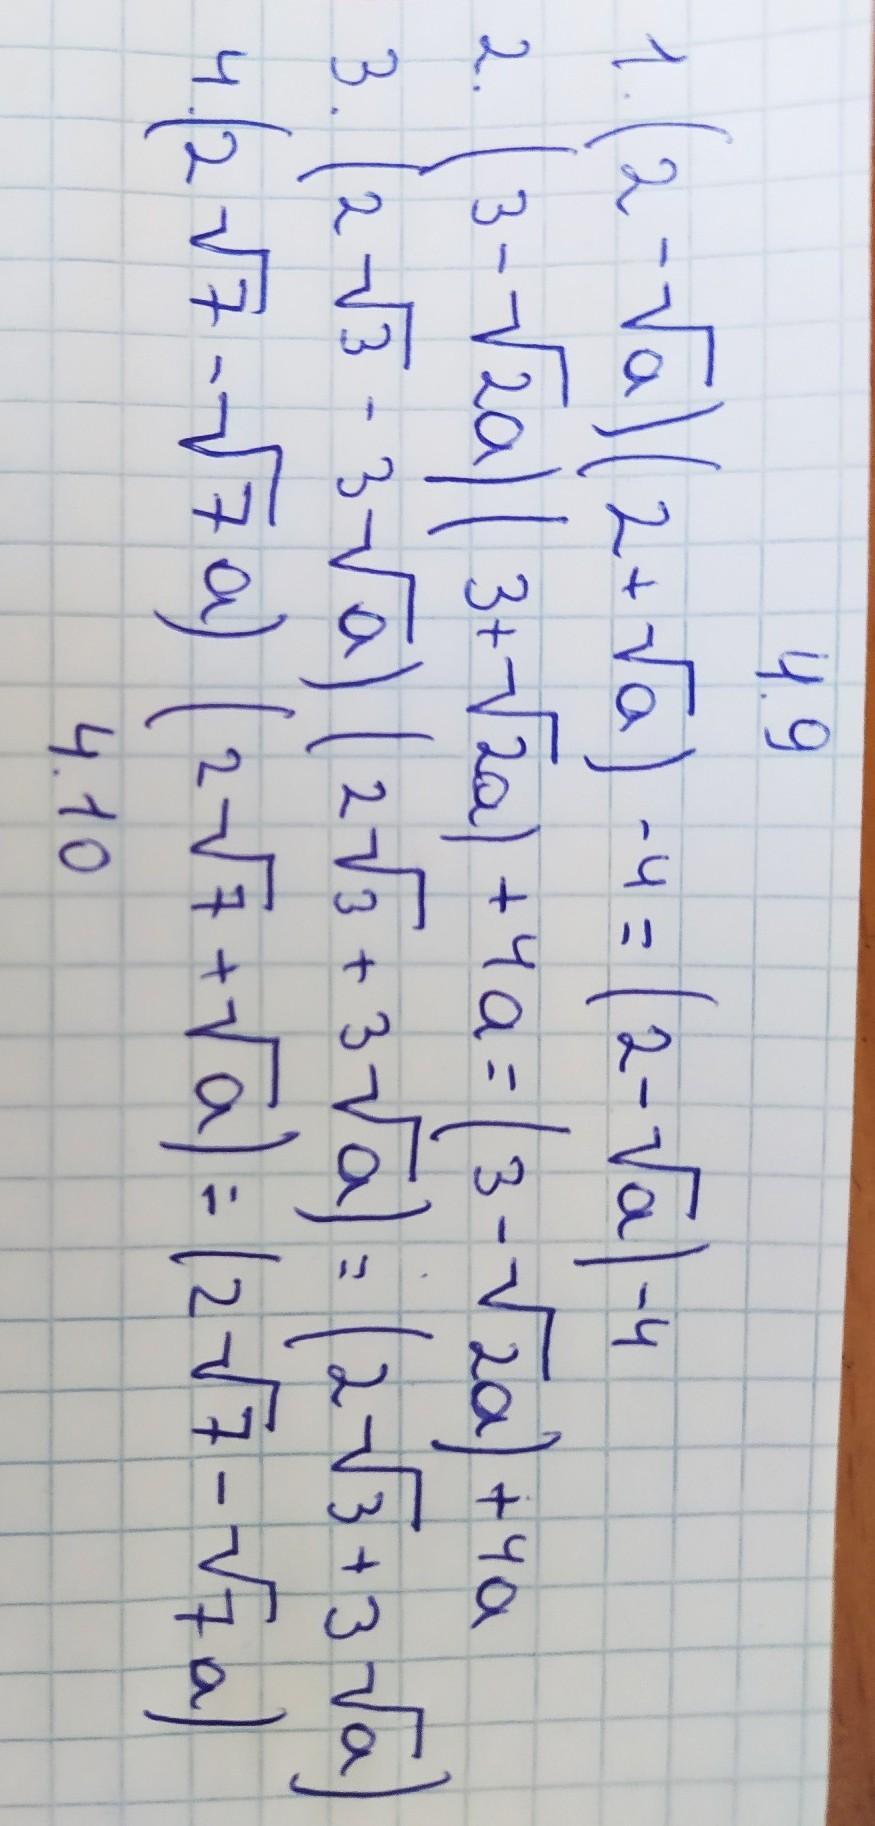 4.9
1. (2 - √a)(2 + √a) - 4 = (2 - √a) - 4
2. (3 - √2a)(3 + √2a) + 4a = (3 - √2a) + 4a
3. (2√3 - 3√a)(2√3 + 3√a) = (2√3 + 3√a)
4. (2√7 - √7a)(2√7 + √a) = (2√7 - √7a)
4.10